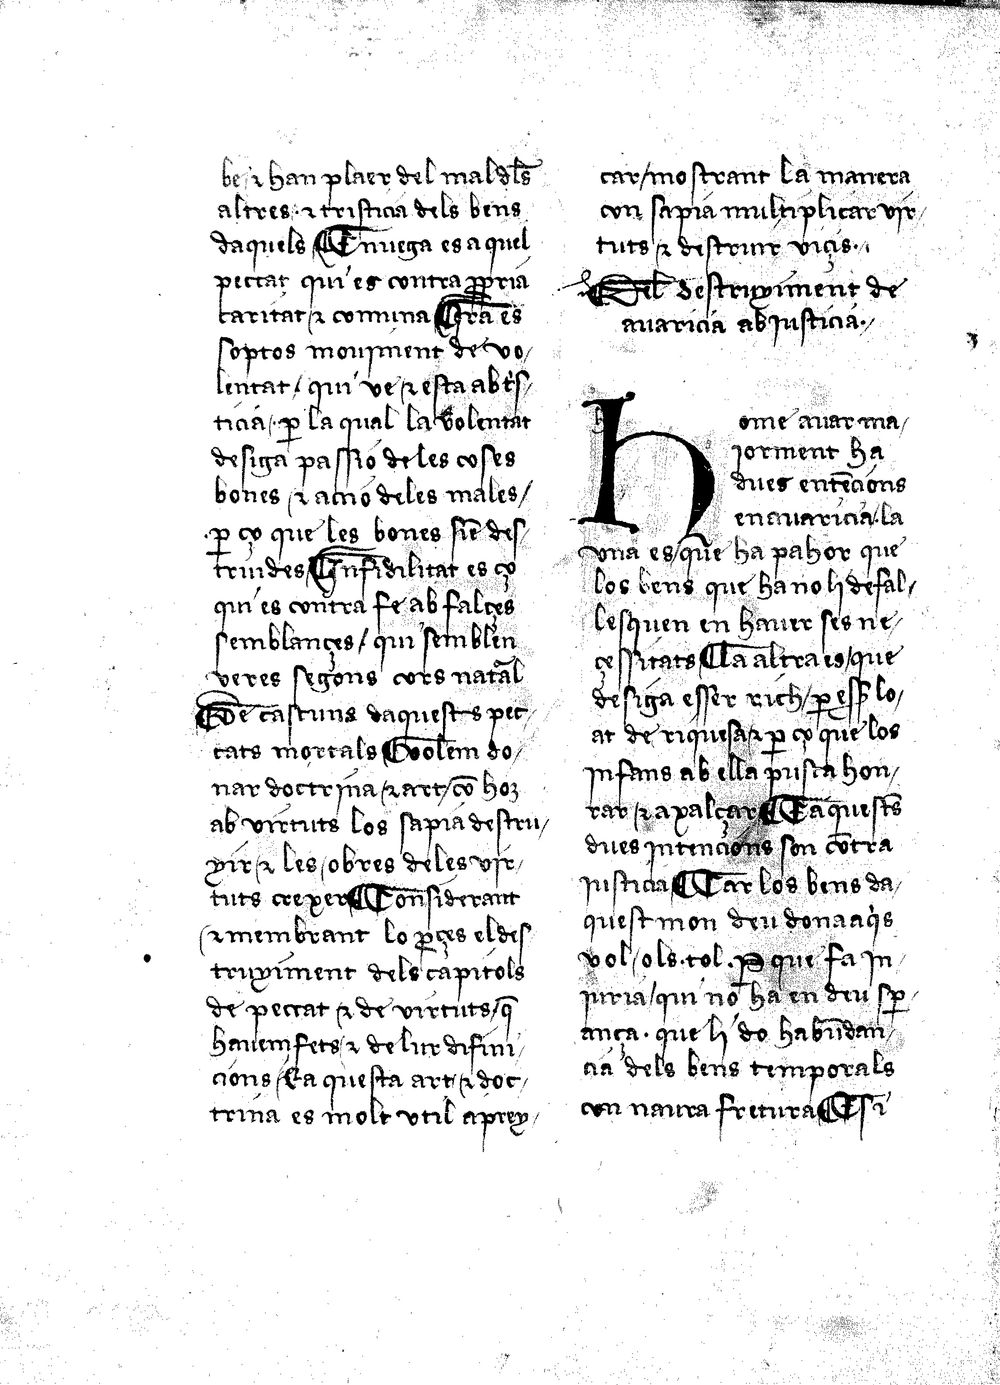 be ⁊ han plaer del mal dls̄
altres· ⁊ tristicia dels bens
daquels ¶ Enuega es a quel
peccat qui es contra ꝓpria
caritat ⁊ comuna ¶ Ira es
soptos mouiment de vo/
lentat / qui ve ⁊ esta ab t͛s/
ticia· ꝑ la qual la volentat
desiga passio de les coses
bones ⁊ acrio deles males/
·ꝑ ço que les bones siē des/
truides ¶ Infidilitat es ço
qui es contra fe ab falçes
semblançes / qui semblen
veres segons cors natāl
¶ De cascuns daquests pec/
cats mortals ¶ volem do/
nar doctrina / ⁊ art / cō hom
ab virtuts los sapia destru/
yir ⁊ les obres deles vir/
tuts crexer ¶ Considerant
⁊ membrant lo ꝓçes el des
truyiment dels capitols
de peccat ⁊ de virtuts / q̄
hauem fets ⁊ de lur difini/
cions / Ea questa art ⁊ doc/
trina es molt vtil a prey/
car / mostrant la manera
con sapia multiplicar vir/
tuts ⁊ destruir vicis·
¶ Del destruyiment de
auaricia ab justicia·
home auar ma/
jorment ha
dues entēcions
en auaricia· la
vna es / que ha pahor que
los bens que ha no li defal/
lesquen en hauer ses ne/
cessitats ¶ La altra es / que
desiga esser rich / ꝑ ess̄ lo/
at de riquesa ⁊ ꝑ ço que los
infans ab ella pusca hon/
rar / ⁊ apalçar ¶ E aquests̄
dues intencions son cōtra
justicia ¶ Car los bens da/
quest mon deu dona a q͛s
vol / ols· tol· Ꝑ que fa in/
iuria / qui no ha en deu sꝑ/
ança· que li do habūdan/
cia dels bens temporals
con naura fretura ¶ E si